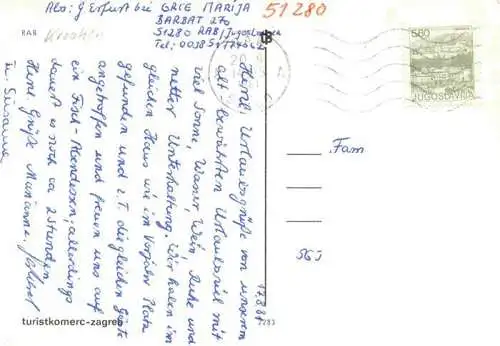 Abs: J. Erfurt bei GRCE MARIJA
BARBAT 270
51280 RAB/Jugoslawien
Tel:
51280
RAB
Kroatien
5.60
JUGOSLAVIJA
Herzl. Urlaubsgrüße von unserem
alt bewährten Urlaubsziel mit
viel Sonne, Wasser, Wein, Ruhe und
netter Unterhaltung. Wir haben im
gleichen Haus wie im Vorjahr Platz
gefunden und z.T. die gleichen Gäste
angetroffen und freuen uns auf
ein Fisch-Abendessen, allerdings
dauert es noch ca 2 Stunden.
Herzl. Grüße Marianne,
u. Susanne
17.8.81
Fam.
turistkomerc-zagreb
2283